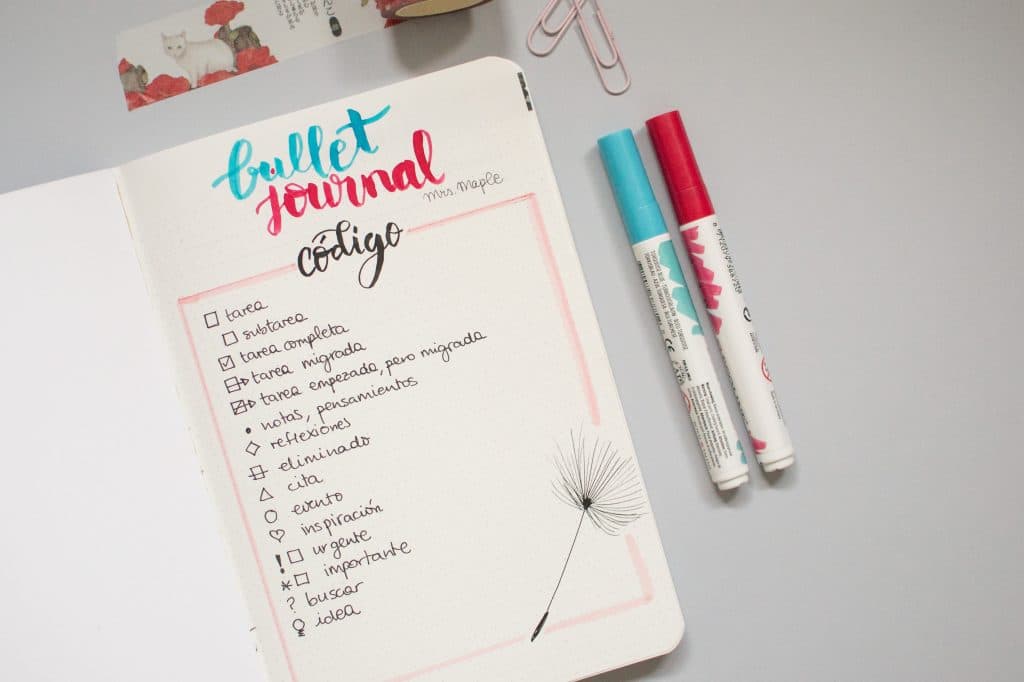 bullet
journal
Mrs. Maple
código
tarea
subtarea
tarea completa
tarea migrada
tarea empezada, pero migrada
notas, pensamientos
reflexiones
eliminado
cita
evento
inspiración
! urgente
* importante
? buscar
idea